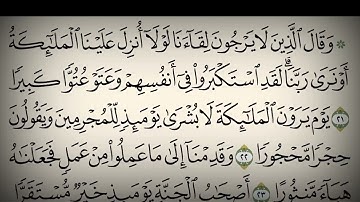 وَقَالَ الَّذِينَ لَا يَرْجُونَ لِقَاءَنَا لَوْلَا أُنزِلَ عَلَيْنَا الْمَلَائِكَةُ
أَوْ نَرَىٰ رَبَّنَا ۗ لَقَدِ اسْتَكْبَرُوا فِي أَنفُسِهِمْ وَعَتَوْ عُتُوًّا كَبِيرًا
٢١ يَوْمَ يَرَوْنَ الْمَلَائِكَةَ لَا بُشْرَىٰ يَوْمَئِذٍ لِّلْمُجْرِمِينَ وَيَقُولُونَ
حِجْرًا مَّحْجُورًا ٢٢ وَقَدِمْنَا إِلَىٰ مَا عَمِلُوا مِنْ عَمَلٍ فَجَعَلْنَاهُ
هَبَاءً مَّنثُورًا ٢٣ أَصْحَابُ الْجَنَّةِ يَوْمَئِذٍ خَيْرٌ مُّسْتَقَرًّا